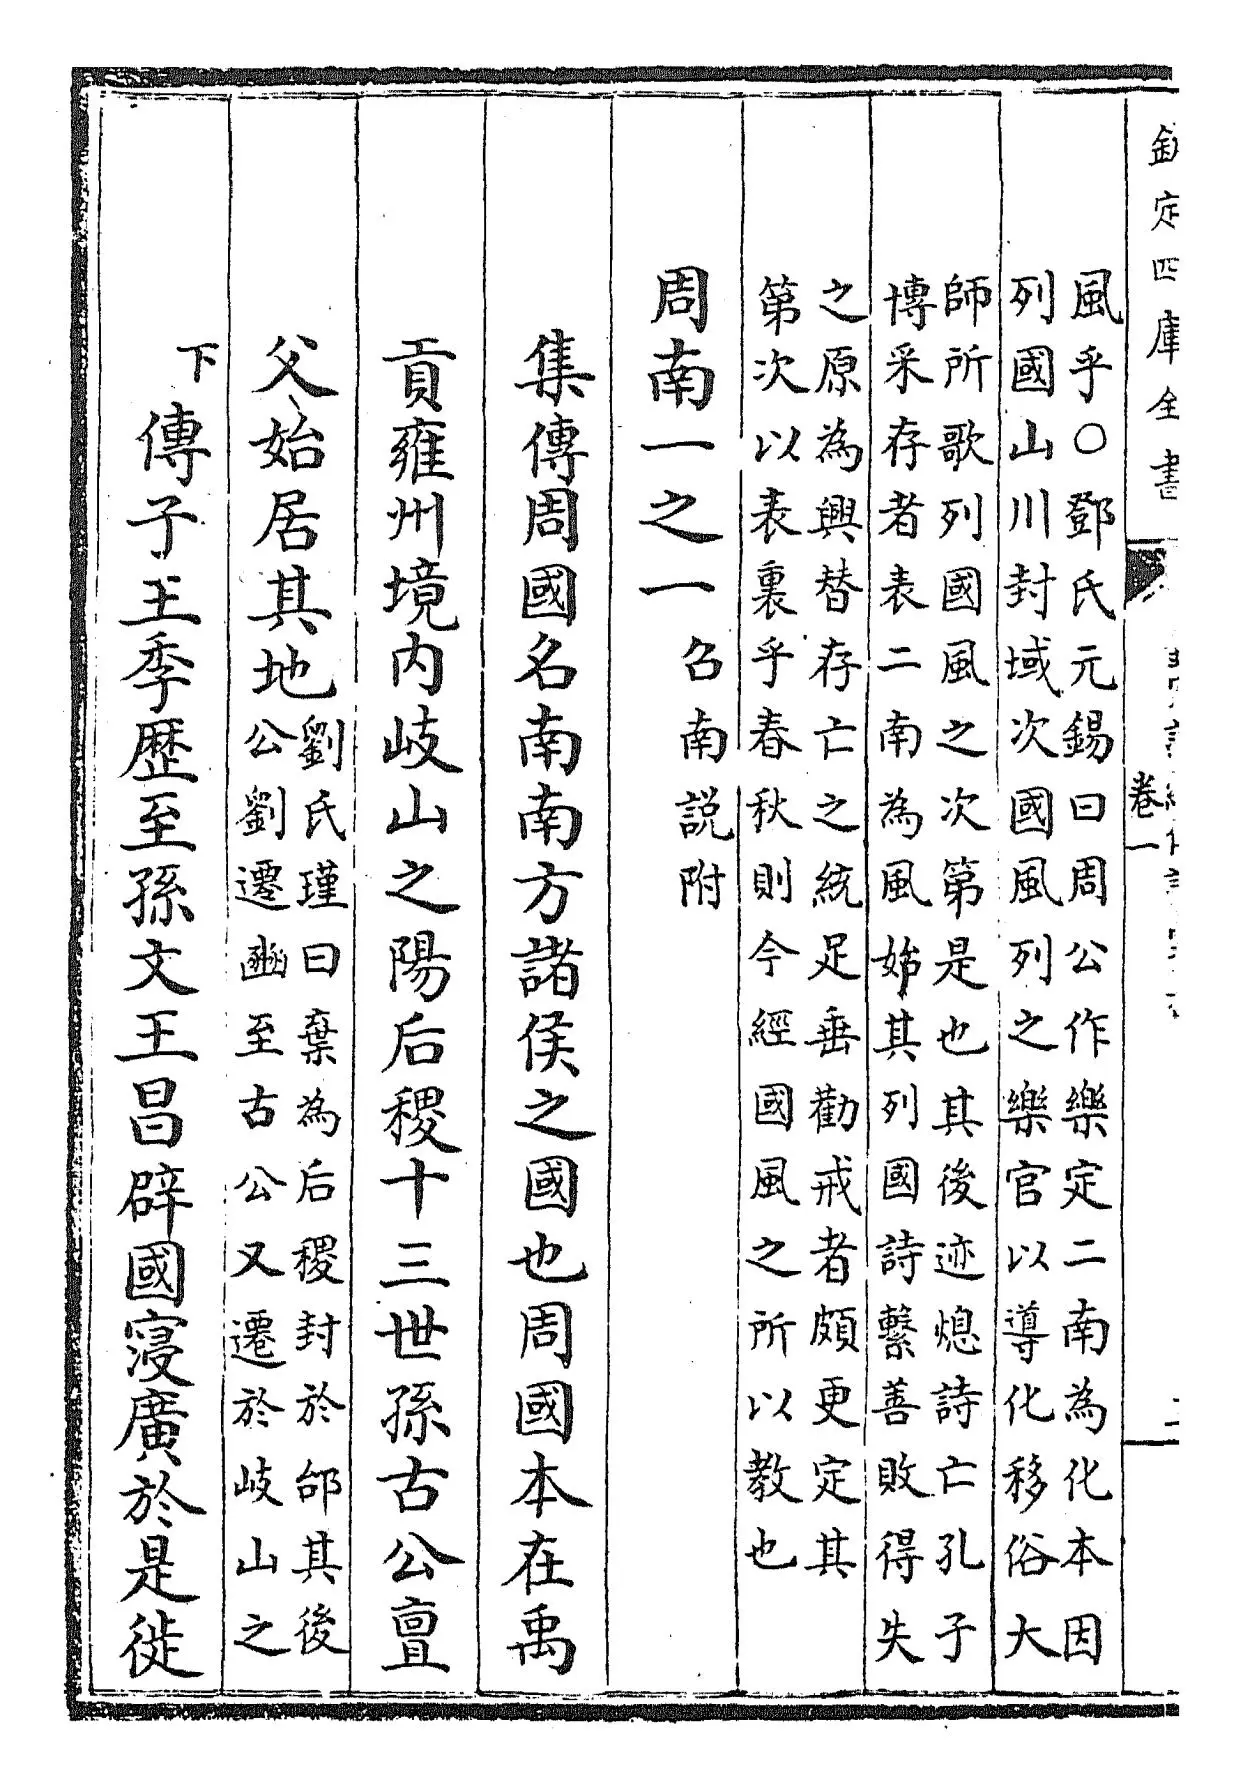 欽定四庫全書
卷一
風乎○鄧氏元錫曰周公作樂定二南為化本因
列國山川封域次國風列之樂官以導化移俗大
師所歌列國風之次第是也其後迹熄詩亡孔子
博采存者表二南為風始其列國詩繫善敗得失
之原為興替存亡之統足垂勸戒者頗更定其
第次以表裏乎春秋則今經國風之所以教也
周南一之一 召南說附
集傳周國名南南方諸侯之國也周國本在禹
貢雍州境内岐山之陽后稷十三世孫古公亶
父始居其地
劉氏瑾曰棄為后稷封於邰其後
公劉遷豳至古公又遷於岐山之
下
傳子王季歷至孫文王昌辟國寖廣於是徙